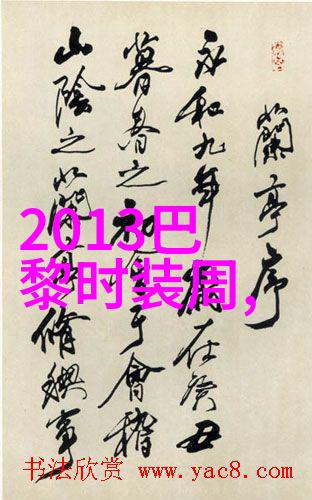 蘭亭序
永和九年歲在癸丑
暮春之初會于會稽
山陰之蘭亭脩禊事
2013巴
黎时装周,
书法欣赏 www.yac8.com